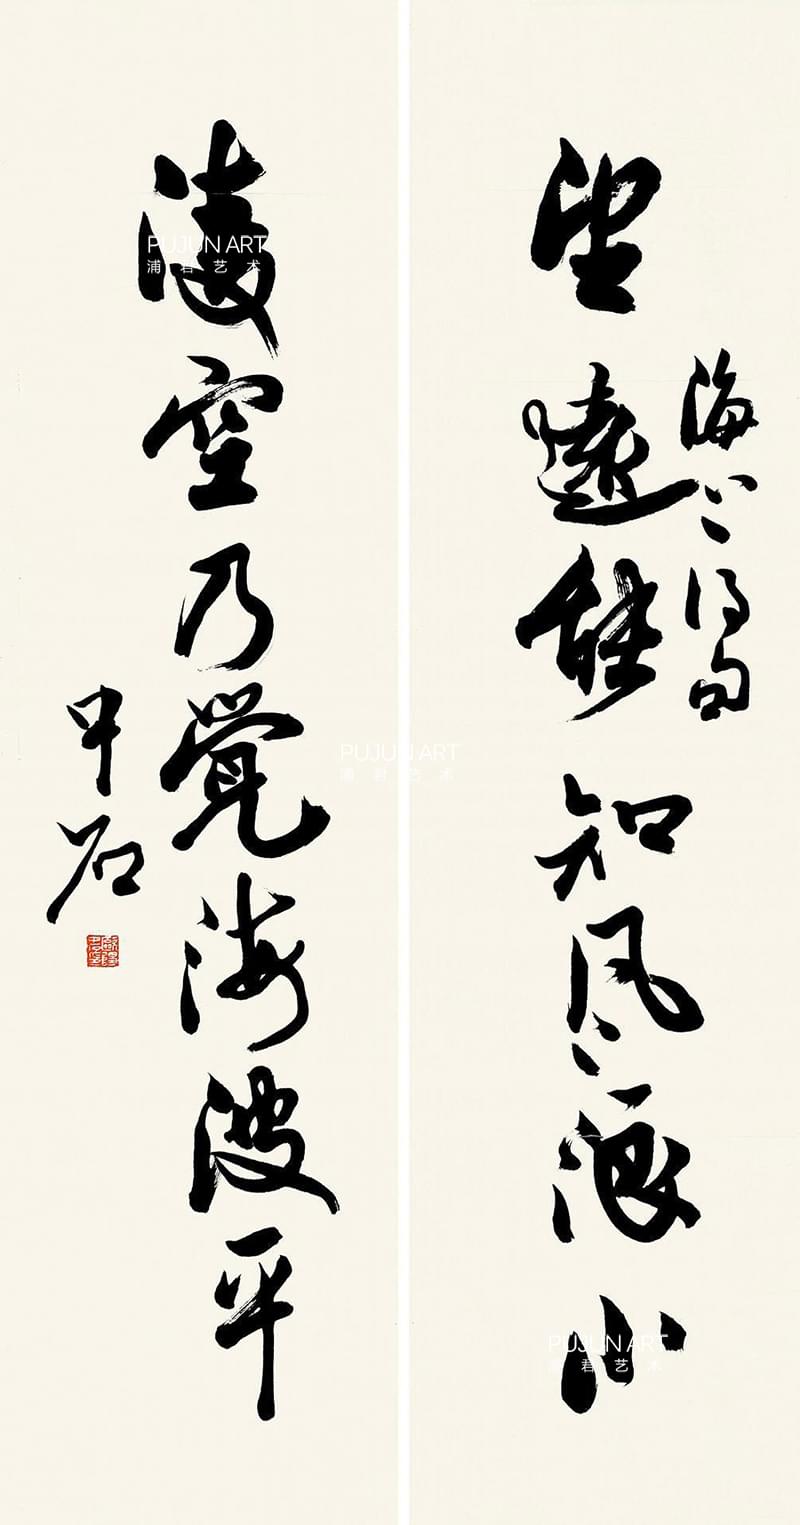 望遠能知風浪小
海上得句
凌空乃覺海波平
中石
PUJUN ART
浦君艺术
PUJUN ART
浦君艺术
PUJUN ART
浦君艺术